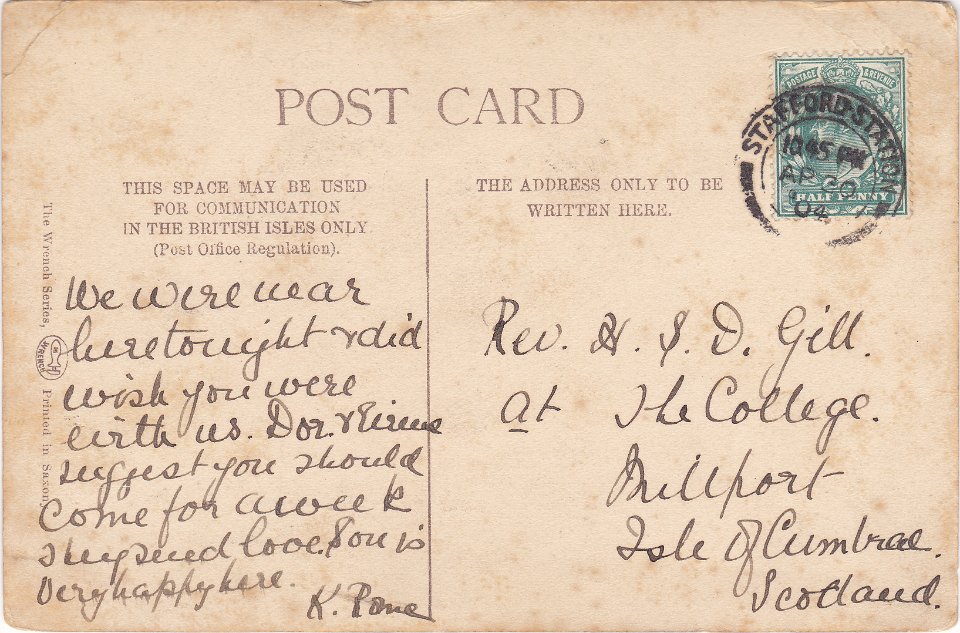 POST CARD
THIS SPACE MAY BE USED
FOR COMMUNICATION
IN THE BRITISH ISLES ONLY.
(Post Office Regulation).
THE ADDRESS ONLY TO BE
WRITTEN HERE.
POSTAGE & REVENUE
HALF PENNY
STAFFORD·STATION
10.45 PM
AP 20
04
The Wrench Series,
WRENCH
Printed in Saxony
We were near
here tonight & did
wish you were
with us. Dor. &
suggest you should
come for a week
They send love. is
very happy here.
K.
Rev. H. S. D. Gill.
at The College.
Millport
Isle of Cumbrae.
Scotland.